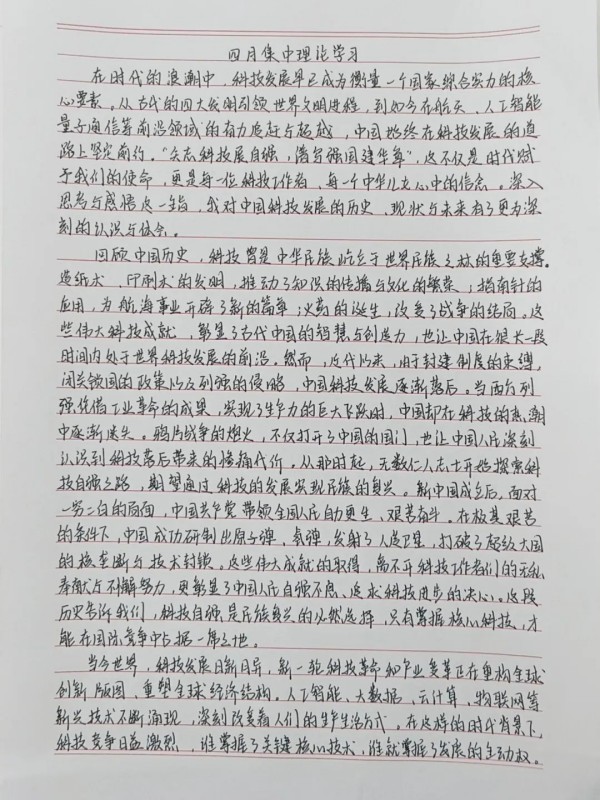 四月集中理论学习
在时代的浪潮中，科技发展早已成为衡量一个国家综合实力的核
心要素。从古代的四大发明引领世界文明进程，到如今在航天、人工智能
量子通信等前沿领域的奋力追赶与超越，中国始终在科技发展的道
路上坚定前行。“矢志科技展自强，谱写强国建华章”，这不仅是时代赋
予我们的使命，更是每一位科技工作者、每一个中华儿女心中的信念。深入
思考与感悟这一主旨，我对中国科技发展的历史、现状与未来有了更为深
刻的认识与体会。
回顾中国历史，科技曾是中华民族屹立于世界民族之林的重要支撑。
造纸术、印刷术的发明，推动了知识的传播与文化的繁荣；指南针的
应用，为航海事业开辟了新的篇章；火药的诞生，改变了战争的格局。这
些伟大科技成就，彰显了古代中国的智慧与创造力，也让中国在很长一段
时间内处于世界科技发展的前沿。然而，近代以来，由于封建制度的束缚，
闭关锁国的政策以及列强的侵略，中国科技发展逐渐落后。当西方列
强凭借工业革命的成果，实现了生产力的巨大飞跃时，中国却在科技的热潮
中逐渐迷失。鸦片战争的炮火，不仅打开了中国的国门，也让中国人民深刻
认识到科技落后带来的惨痛代价。从那时起，无数仁人志士开始探索科
技自强之路，期望通过科技的发展实现民族的复兴。新中国成立后，面对
一穷二白的局面，中国共产党带领全国人民自力更生、艰苦奋斗。在极其艰苦
的条件下，中国成功研制出原子弹、氢弹，发射了人造卫星，打破了超级大国
的核垄断与技术封锁。这些伟大成就的取得，离不开科技工作者们的无私
奉献与不懈努力，更彰显了中国人民自强不息、追求科技进步的决心。这段
历史告诉我们，科技自强是民族复兴的必然选择，只有掌握核心科技，才
能在国际竞争中占据一席之地。
当今世界，科技发展日新月异，新一轮科技革命和产业变革正在重构全球
创新版图、重塑全球经济结构。人工智能、大数据、云计算、物联网等
新兴技术不断涌现，深刻改变着人们的生产生活方式。在这样的时代背景下，
科技竞争日益激烈，谁掌握了关键核心技术，谁就掌握了发展的主动权。